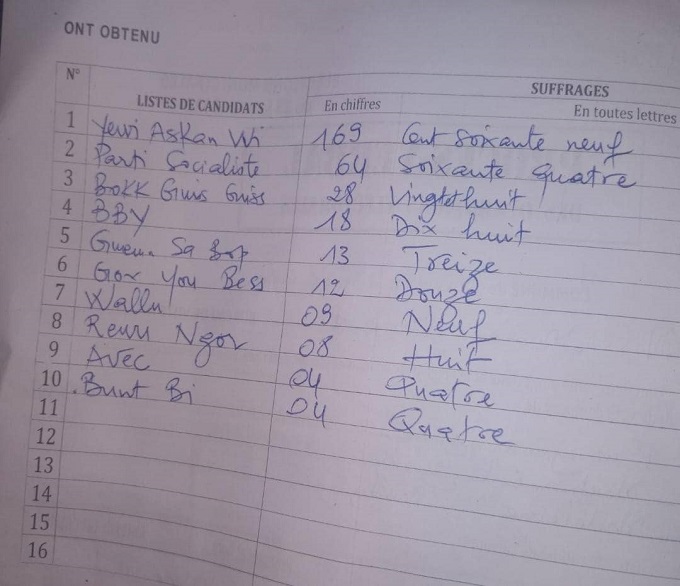 ONT OBTENU
N° LISTES DE CANDIDATS SUFFRAGES
En chiffres En toutes lettres
1 Yewi Askan Wi 169 Cent soixante neuf
2 Parti Socialiste 64 Soixante quatre
3 Bokk Guis Guiss 28 Vingt et huit
4 BBY 18 Dix huit
5 Guem Sa Bop 13 Treize
6 Gox You Bess 12 Douze
7 Wallu 09 Neuf
8 Rewu Ngor 08 Huit
9 Avec 04 Quatre
10 Bunt Bi 04 Quatre
11
12
13
14
15
16